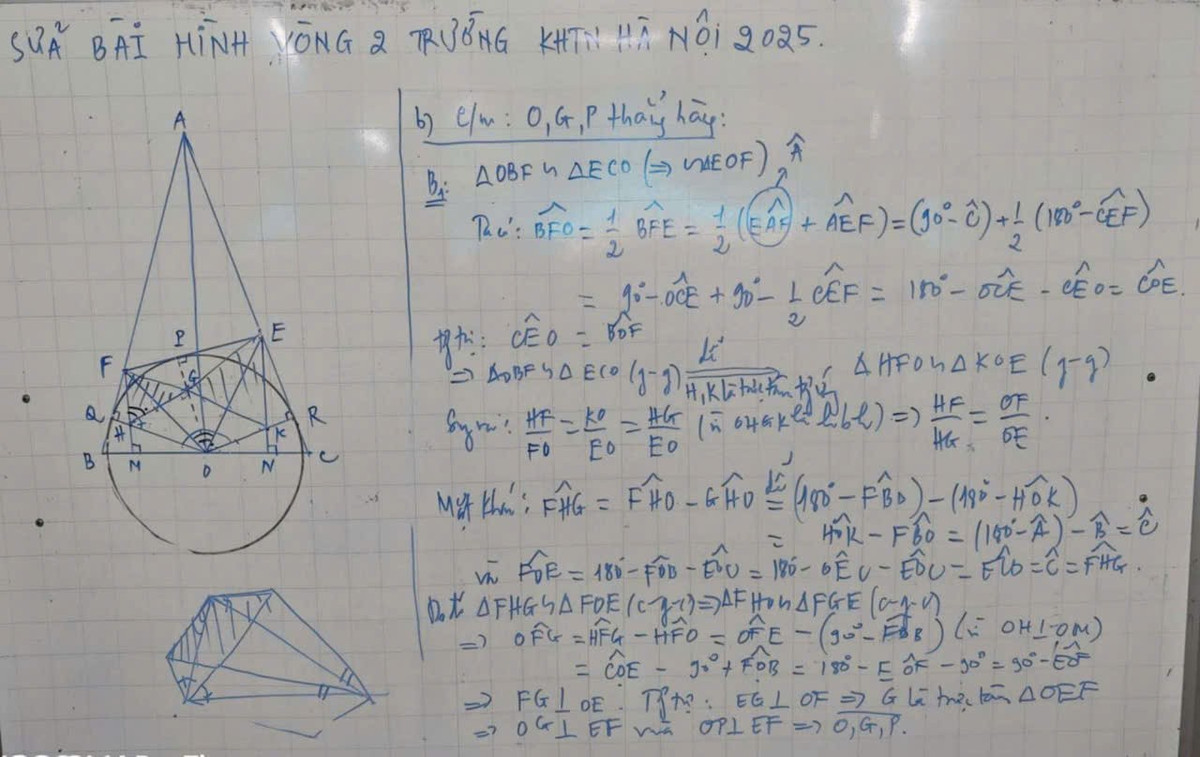 SỬA BÀI HÌNH VÒNG 2 TRƯỜNG KHTN HÀ NỘI 2025.
b) C/m: O, G, P thẳng hàng:
B1: ΔOBF ∽ ΔECO (⇒ ∽ ΔEOF) Â
Ta có: BF̂O = 1/2 BF̂E = 1/2 (EÂF + AÊF) = (90° - Ĉ) + 1/2 (180° - CÊF)
= 90° - OĈE + 90° - 1/2 CÊF = 180° - OĈE - CÊO = CÔE.
tg tự: CÊO = BÔF
⇒ ΔOBF ∽ ΔECO (g-g) H, K là trực tâm ΔHFO ∽ ΔKOE (g-g)
Suy ra: HF/FO = KO/EO = HG/EO (vì OHGK là hbh) ⇒ HF/HG = OF/OE.
Mặt khác: FĤG = FĤO - GĤO = (180° - FB̂O) - (180° - HÔK)
= HÔK - FB̂O = (180° - Â) - B̂ = Ĉ
và FÔE = 180° - FÔB - EÔC = 180° - OÊC - EÔC = EĈO = Ĉ = FĤG.
Do đó ΔFHG ∽ ΔFOE (c-g-c) ⇒ ΔFHO ∽ ΔFGE (c-g-c)
⇒ OF̂G = HF̂G - HF̂O = OF̂E - (90° - FÔB) (vì OH⊥OM)
= CÔE - 90° + FÔB = 180° - EÔF - 90° = 90° - EÔF
⇒ FG ⊥ OE. Tg tự: EG ⊥ OF ⇒ G là trực tâm ΔOEF
⇒ OG ⊥ EF mà OP ⊥ EF ⇒ O, G, P.
A
P
E
F
G
Q
R
H
K
B
M
O
N
C